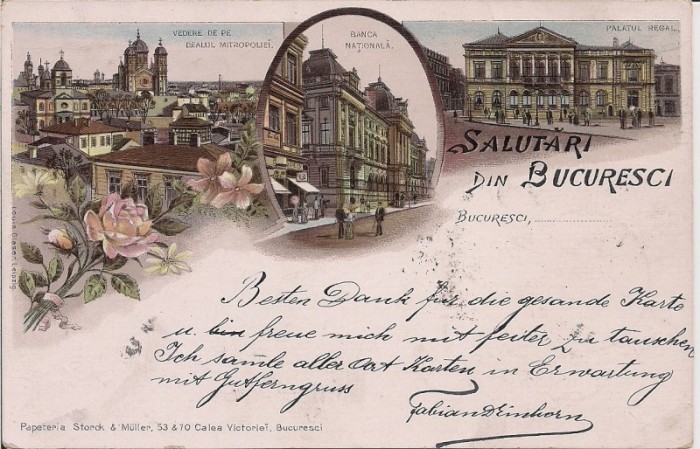 VEDERE DE PE
DEALUL MITROPOLIEĬ.
BANCA
NAȚIONALĂ.
PALATUL REGAL.
SALUTĂRI
DIN BUCURESCI
BUCURESCI,
Besten Dank für die gesande Karte
u. bin freue mich mit zu tauschen
Ich samle aller Art Karten in Erwartung
mit Gutferngruss
Fabian Einhorn
Papeteria Storck & Müller, 53 & 70 Calea Victorieĭ, Bucuresci
Louis Glaser, Leipzig